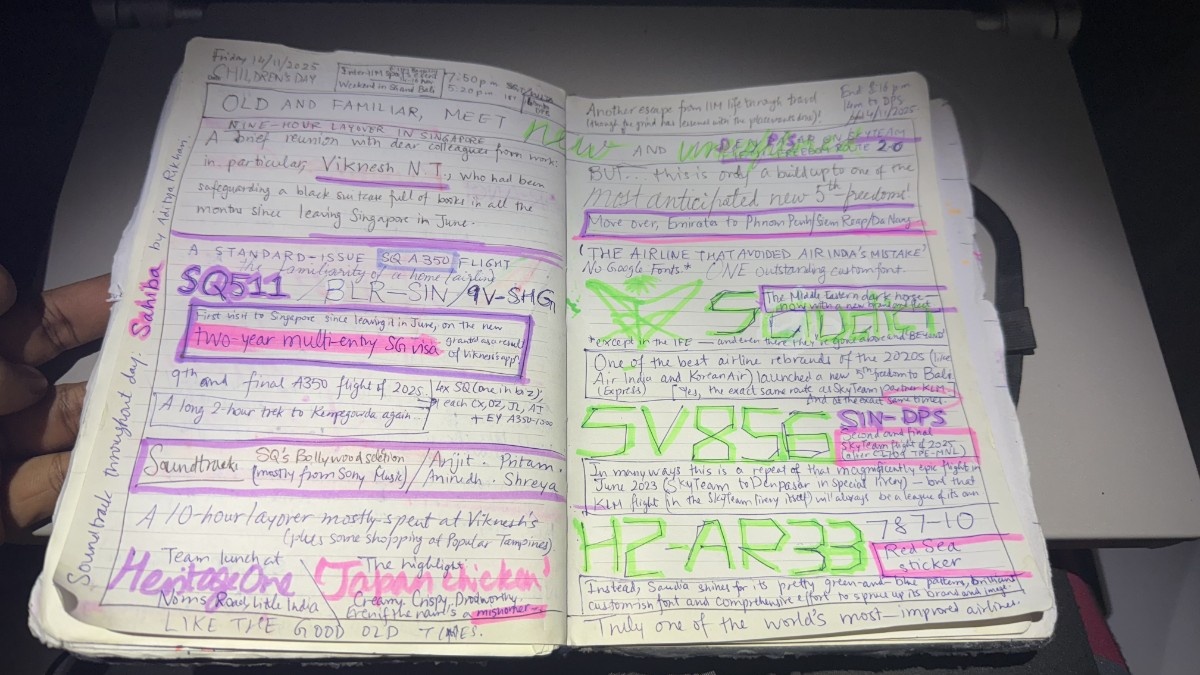 Friday 14/11/2025
CHILDREN'S DAY
Inter-IIM Sports
Weekend in Shaud Bali
7:50pm
5:20pm
OLD AND FAMILIAR, MEET
NINE-HOUR LAYOVER IN SINGAPORE
A brief reunion with dear colleagues from work:
in particular, Viknesh N.T., who had been
safeguarding a black suitcase full of books in all the
months since leaving Singapore in June.
A STANDARD-ISSUE SQ A350 FLIGHT
the familiarity of a home (airline)
SQ511 / BLR–SIN / 9V-SHG
First visit to Singapore since leaving it in June, on the new
two-year multi-entry SG visa granted as a result
of Viknesh's app
9th and final A350 flight of 2025
4x SQ (one in biz),
1 each CX, OZ, JL, AI
+ EY A350-1000
A long 2-hour trek to Kempegowda again
Soundtrack: SQ's Bollywood selection
(mostly from Sony Music)
/ Arijit. Pritam.
/ Anirudh. Shreya
A 10-hour layover mostly spent at Viknesh's
(plus some shopping at Popular Tampines)
Team lunch at
HeritageOne
Norris Road, Little India
The highlight
'Japan chicken'
Creamy. Crispy. Droolworthy.
Even if the name's a misnomer
LIKE THE GOOD OLD TIMES.
Soundtrack throughout day: Sahiba by Aditya Rikhari
Another escape from IIM life through travel
(though the grind has lessened with the placements done)!
new AND
2.0
BUT... this is only a buildup to one of the
most anticipated new 5th freedoms!
Move over, Emirates to Phnom Penh/Siem Reap/Da Nang
'THE AIRLINE THAT AVOIDED AIR INDIA'S MISTAKE'
No Google Fonts* ONE outstanding custom font
Saudia
The Middle Eastern dark horse
now with a new brand and fleet
*except in the IFE — and even there they've gone above and BEYOND
One of the best airline rebrands of the 2020s (like
Air India and Korean Air) launched a new 5th freedom to Bali
(Express) Yes, the exact same route as SkyTeam partner KLM
and at the exact same times
SV856 SIN-DPS
Second and final
SkyTeam flight of 2025
(after CI701 TPE-MNL)
In many ways this is a repeat of that magnificently epic flight in
June 2023 (SkyTeam to Denpasar in special livery) — but that
KLM flight (in the SkyTeam livery itself) will always be a league of its own
HZ-AR33 787-10
Red Sea
sticker
Instead, Saudia shines for its pretty green-and-blue patterns, brilliant
custom-ish font and comprehensive effort to spruce up its brand and image
Truly one of the world's most-improved airlines.